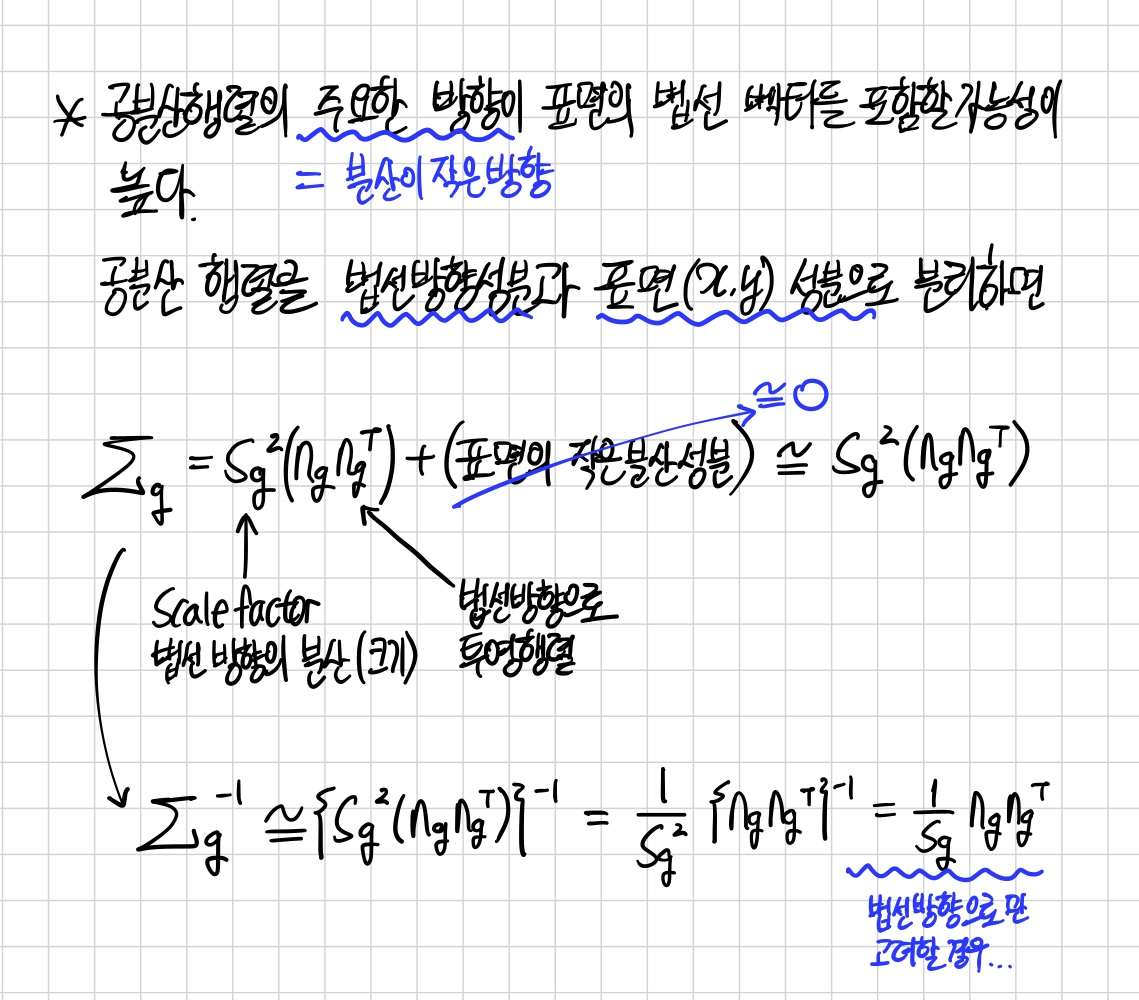 * 공분산행렬의 주요한 방향이 표면의 법선 벡터를 포함할 가능성이
높다.
= 분산이 작은 방향
공분산 행렬을 법선방향성분과 표면(x,y) 성분으로 분리하면
≅ 0
Σg = Sg²(ngngᵀ) + (표면의 작은분산성분) ≅ Sg²(ngngᵀ)
Scale factor
법선 방향의 분산 (크기)
법선방향으로
투영행렬
Σg⁻¹ ≅ {Sg²(ngngᵀ)}⁻¹ = 1/Sg² {ngngᵀ}⁻¹ = 1/Sg ngngᵀ
법선방향으로만
고려할 경우...